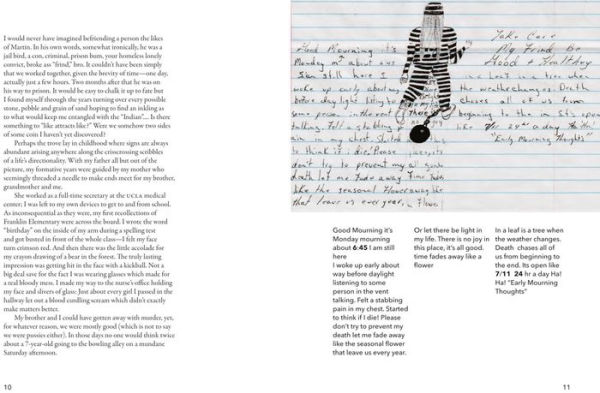 I would never have imagined befriending a person the likes
of Martin. In his own words, somewhat ironically, he was a
jail bird, a con, criminal, prison bum, your homeless lonely
convict, broke as "frind," bro. It couldn't have been simply
that we worked together, given the brevity of time—one day,
actually just a few hours. Two months after that he was on
his way to prison. It would be easy to chalk it up to fate but
I found myself through the years turning over every possible
stone, pebble and grain of sand hoping to find an inkling as
to what would keep me entangled with the "Indian"... Is there
something to "like attracts like?" Were we somehow two sides
of some coin I haven't yet discovered?
Perhaps the trove lay in childhood where signs are always
abundant arising anywhere along the crisscrossing scribbles
of a life's directionality. With my father all but out of the
picture, my formative years were guided by my mother who
seemingly threaded a needle to make ends meet for my brother,
grandmother and me.
She worked as a full-time secretary at the UCLA medical
center; I was left to my own devices to get to and from school.
As inconsequential as they were, my first recollections of
Franklin Elementary were across the board. I wrote the word
"birthday" on the inside of my arm during a spelling test
and got busted in front of the whole class—I felt my face
turn crimson red. And then there was the little accolade for
my crayon drawing of a bear in the forest. The truly lasting
impression was getting hit in the face with a kickball. Not a
big deal save for the fact I was wearing glasses which made for
a real bloody mess. I made my way to the nurse's office holding
my face and slivers of glass: Just about every girl I passed in the
hallway let out a blood curdling scream which didn't exactly
make matters better.
My brother and I could have gotten away with murder, yet,
for whatever reason, we were mostly good (which is not to say
we were pussies either). In those days no one would think twice
about a 7-year-old going to the bowling alley on a mundane
Saturday afternoon.
10
Take Care
My Frind Be
Good + Healthy
Good Mourning it's
Monday about 6:45
I am still here I
woke up early about way
before day light lising to
some person in the vent
talking. Felt a stabbing
pain in my chest. Started
to think if I die! Please
don't try to prevent my
death let me fade away Time fades
like the seasonal Flower
that leave us ever year, a Flower
in a leaf is a tree when
the weather changes. Death
chases all of us from
beginning to the end Its open
like 7/11 24 hr a day Ha! Ha!
"Early Mourning Thoughts"
Good Mourning it's
Monday mourning
about 6:45 I am still
here
I woke up early about
way before daylight
listening to some
person in the vent
talking. Felt a stabbing
pain in my chest. Started
to think if I die! Please
don't try to prevent my
death let me fade away
like the seasonal flower
that leave us every year.
Or let there be light in
my life. There is no joy in
this place, it's all good.
time fades away like a
flower
In a leaf is a tree when
the weather changes.
Death chases all of
us from beginning to
the end. Its open like
7/11 24 hr a day Ha!
Ha! "Early Mourning
Thoughts"
11